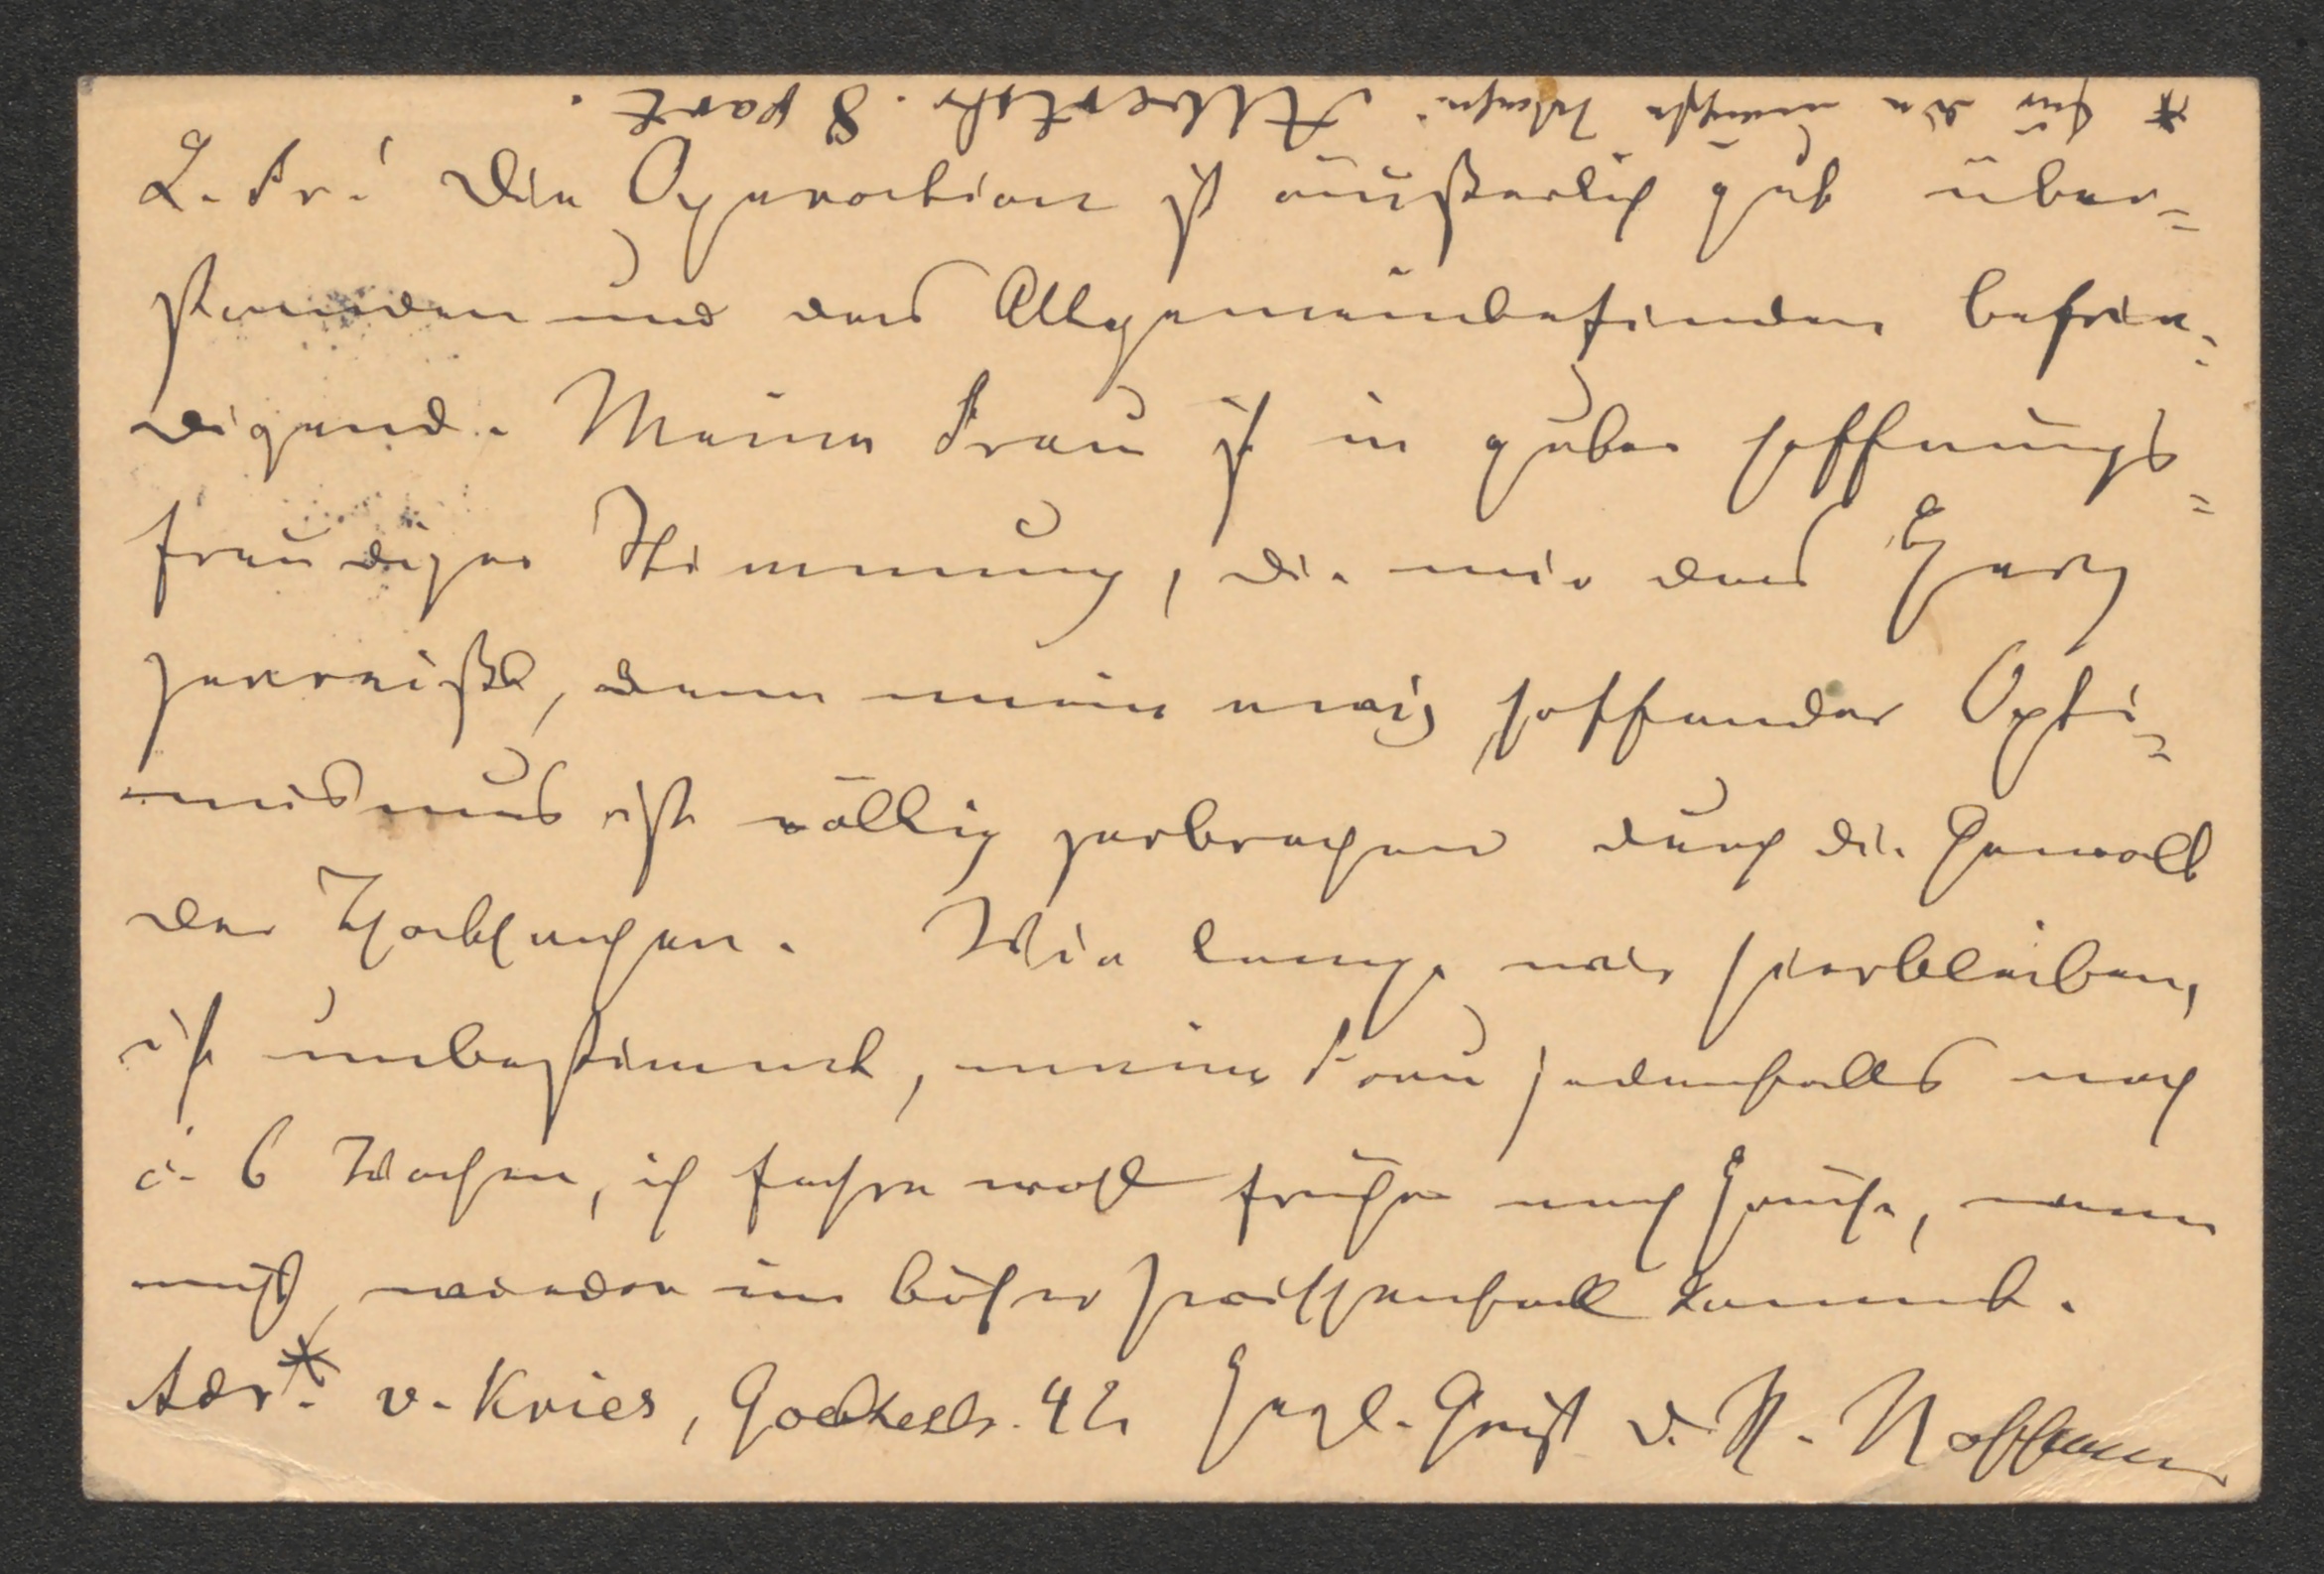 * für die nächste Woche: Albertstr. 8 part.
L. Fr.! Die Operation ist äußerlich gut über=
standen und das Allgemeinbefinden befrie=
digend. Meine Frau ist in guter hoffnungs=
freudiger Stimmung, die mir das Herz
zerreißt, denn mein ewig hoffender Opti=
mismus ist völlig zerbrochen durch die Gewalt
der Thatsachen. Wie lange wir hierbleiben,
ist unbestimmt, meine Frau jedenfalls noch
c. 6 Wochen, ich fahre wohl früher nach Hause, wenn
nicht wieder ein böser Zwischenfall kommt.
Adr*. v. Kries, Goethestr. 42 Herzl. Gruß D. A. Hoffmann